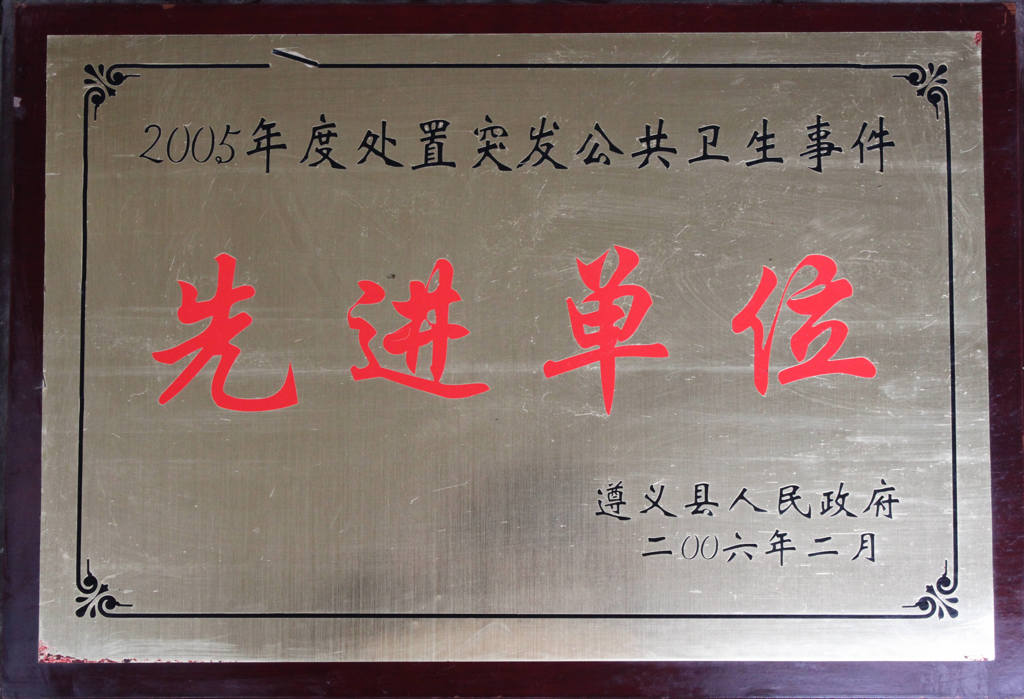 2005年度处置突发公共卫生事件
先进单位
遵义县人民政府
二00六年二月